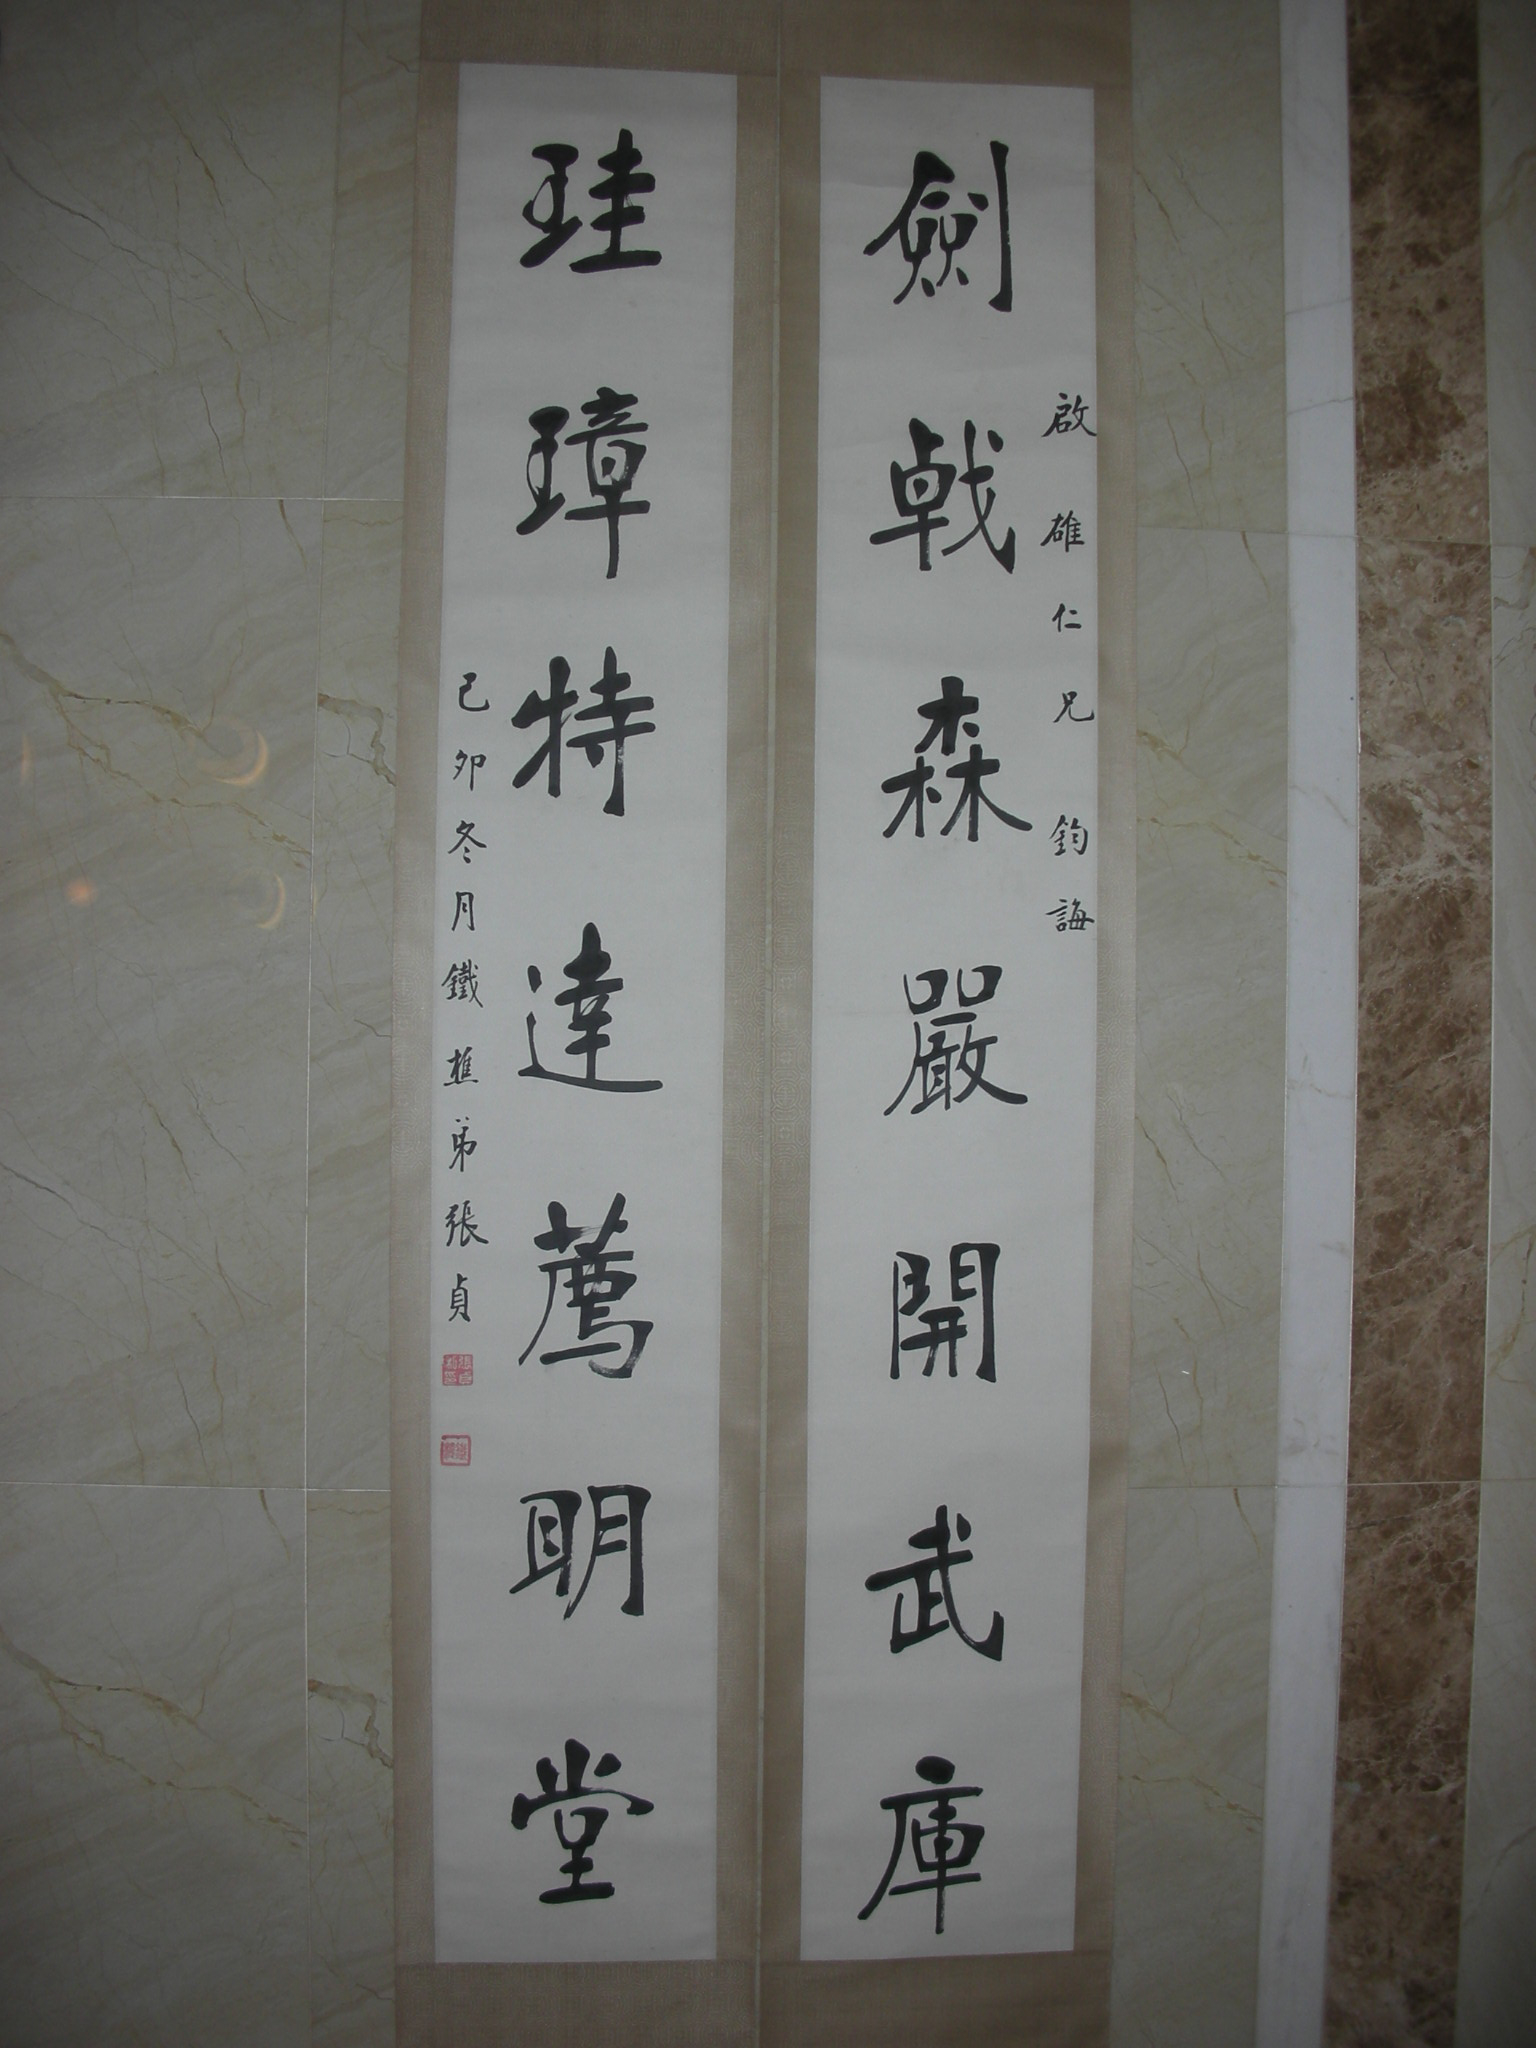 劍戟森嚴開武庫
啟雄仁兄鈞誨
珪璋特達薦明堂
己卯冬月鐵樵弟張貞